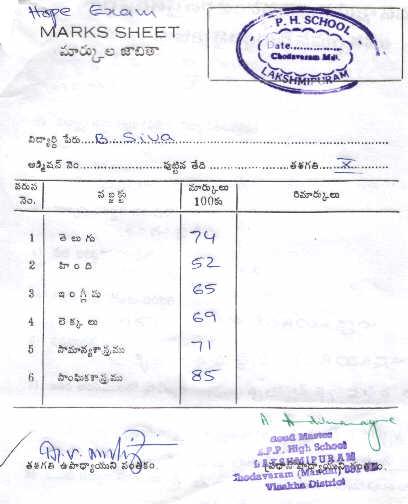 Hope Exam
MARKS SHEET
మార్కుల జాబితా
P. H. SCHOOL
Date..................
Chodavaram Mdl.
LAKSHMIPURAM
విద్యార్థి పేరు..... B. Siva
అడ్మిషన్ నెం.............పుట్టిన తేది.....................తరగతి...... X
వరుస నెం. సబ్జక్ట్స్ మార్కులు 100కు రిమార్కులు
1 తెలుగు 74
2 హింది 52
3 ఇంగ్లీషు 65
4 లెక్కలు 69
5 సామాన్యశాస్త్రము 71
6 సాంఘికశాస్త్రము 85
తరగతి ఉపాధ్యాయుని సంతకం
ప్రధాన ఉపాధ్యాయుని సంతకం.
Head Master
Z.P.P. High School
LAKSHMIPURAM
Chodavaram (Mandal)
Visakha District